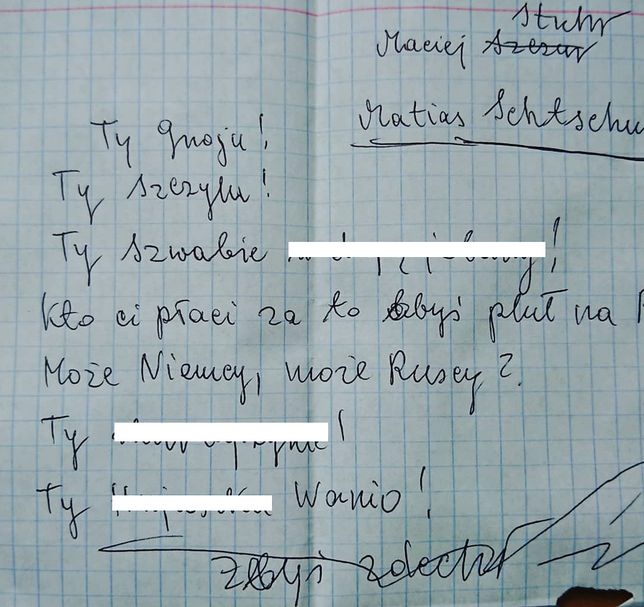 Stuhr
Maciej
Matias Schtschu
Ty gnoju!
Ty szczylu!
Ty szwabie !
Kto ci płaci za to żebyś pluł na
Może Niemcy, może Ruscy?
Ty !
Ty Wanio!
żebyś zdechł